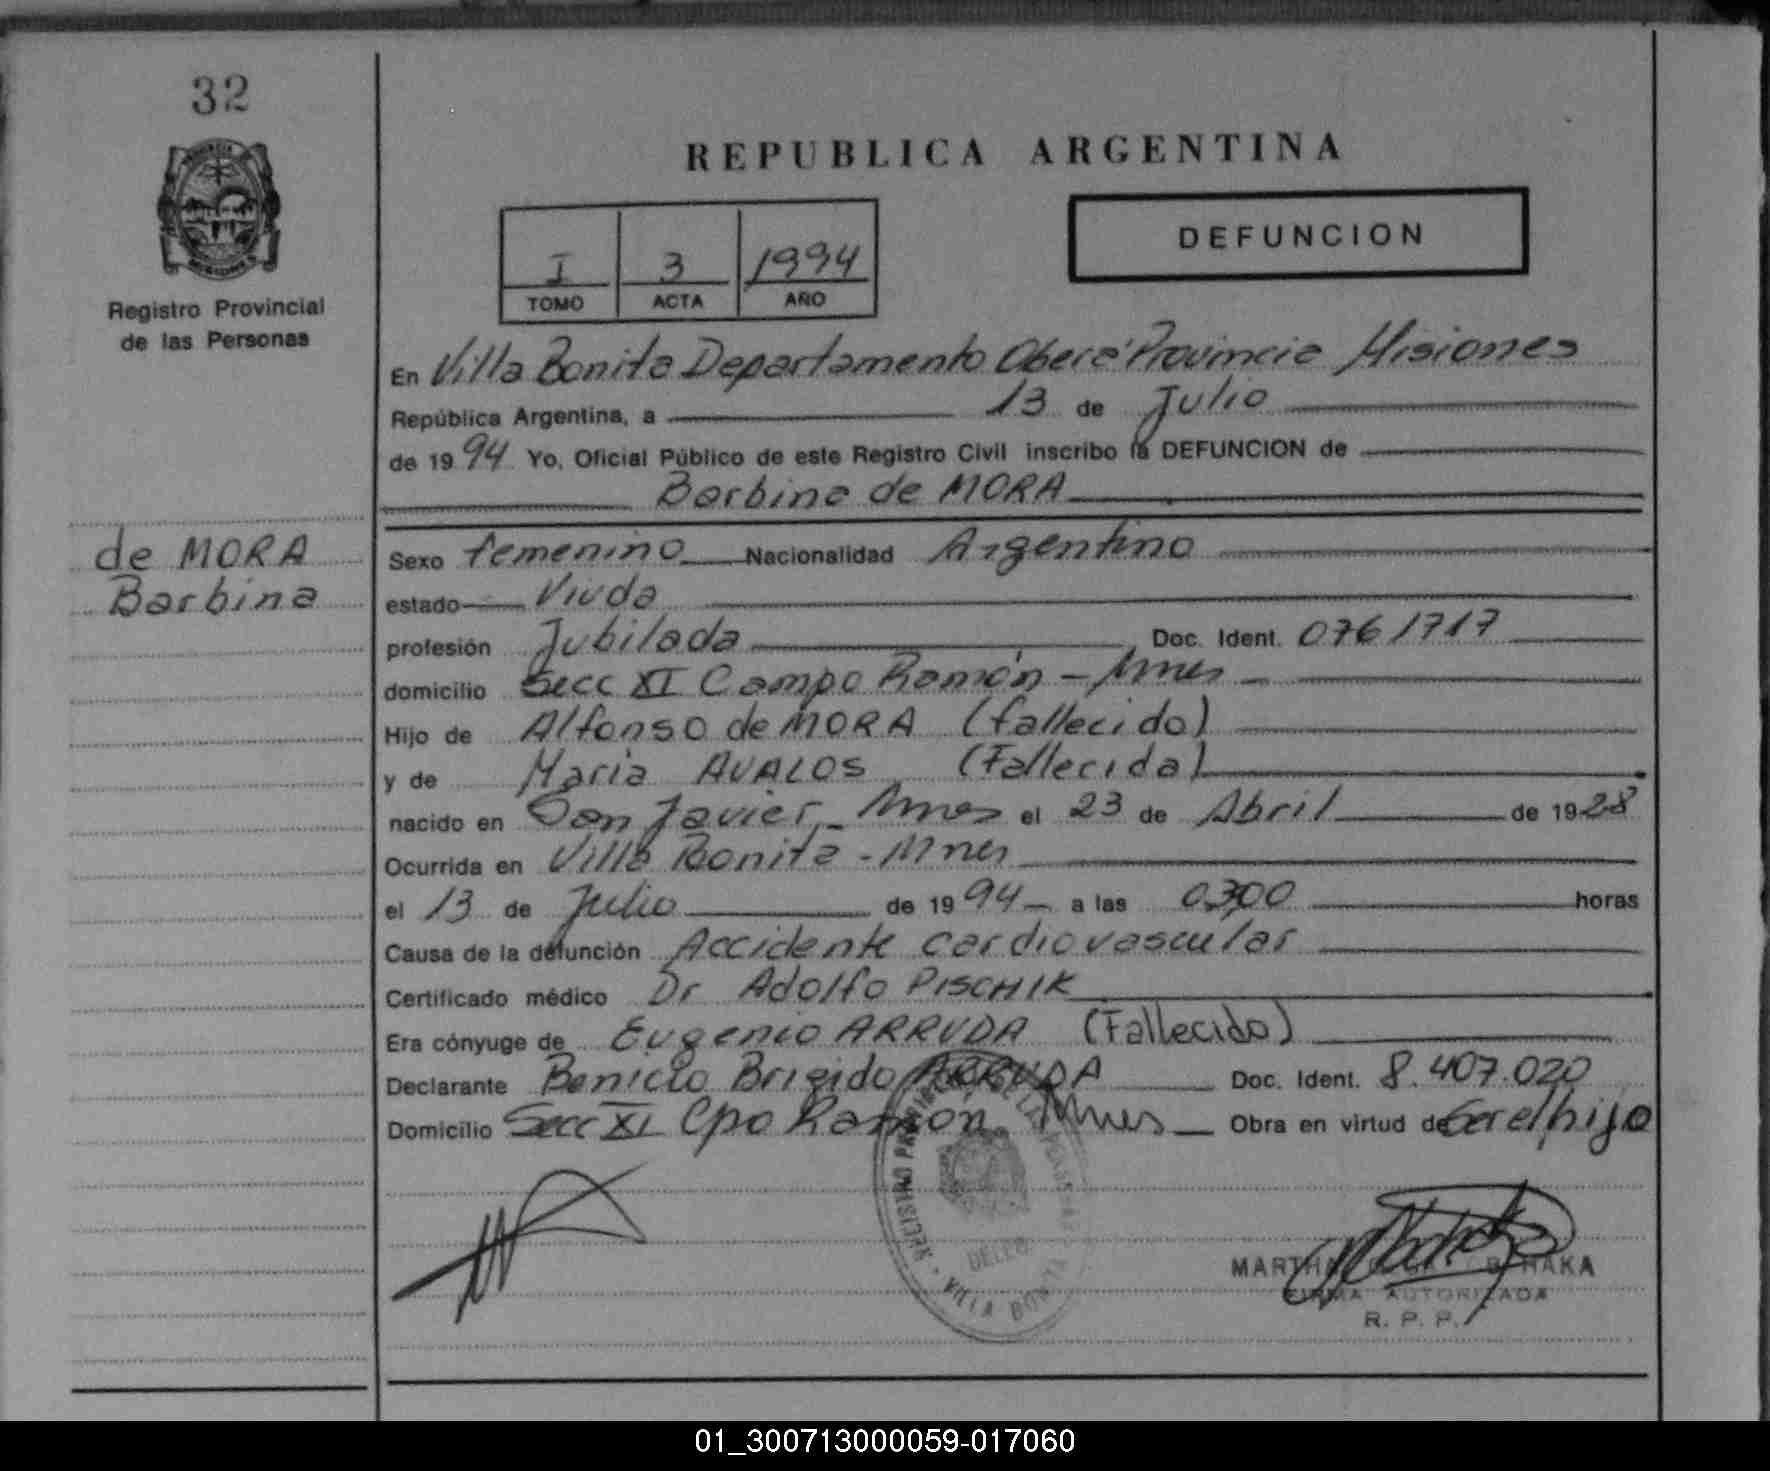 32
REPUBLICA ARGENTINA
DEFUNCION
I 3 1994
TOMO ACTA AÑO
Registro Provincial
de las Personas
En Villa Bonita Departamento Oberá Provincia Misiones
República Argentina, a 13 de Julio
de 1994 Yo, Oficial Público de este Registro Civil inscribo la DEFUNCION de
Barbina de MORA
de MORA
Barbina
Sexo femenino Nacionalidad Argentino
estado Viuda
profesión Jubilada Doc. Ident. 0761717
domicilio Secc XI Campo Ramón - Mnes
Hijo de Alfonso de MORA (fallecido)
y de Maria AVALOS (Fallecida)
nacido en San Javier - Mnes el 23 de Abril de 1928
Ocurrida en Villa Bonita - Mnes
el 13 de Julio de 1994 a las 0300 horas
Causa de la defunción Accidente cardiovascular
Certificado médico Dr Adolfo PISCHIK
Era cónyuge de Eugenio ARRUDA (Fallecido)
Declarante Benicio Brigido ARRUDA Doc. Ident. 8.407.020
Domicilio Secc XI Cpo Ramon Mnes Obra en virtud de Ser el hijo
VILLA BONITA
MARTHA
FIRMA AUTORIZADA
R. P. P.
01_300713000059-017060